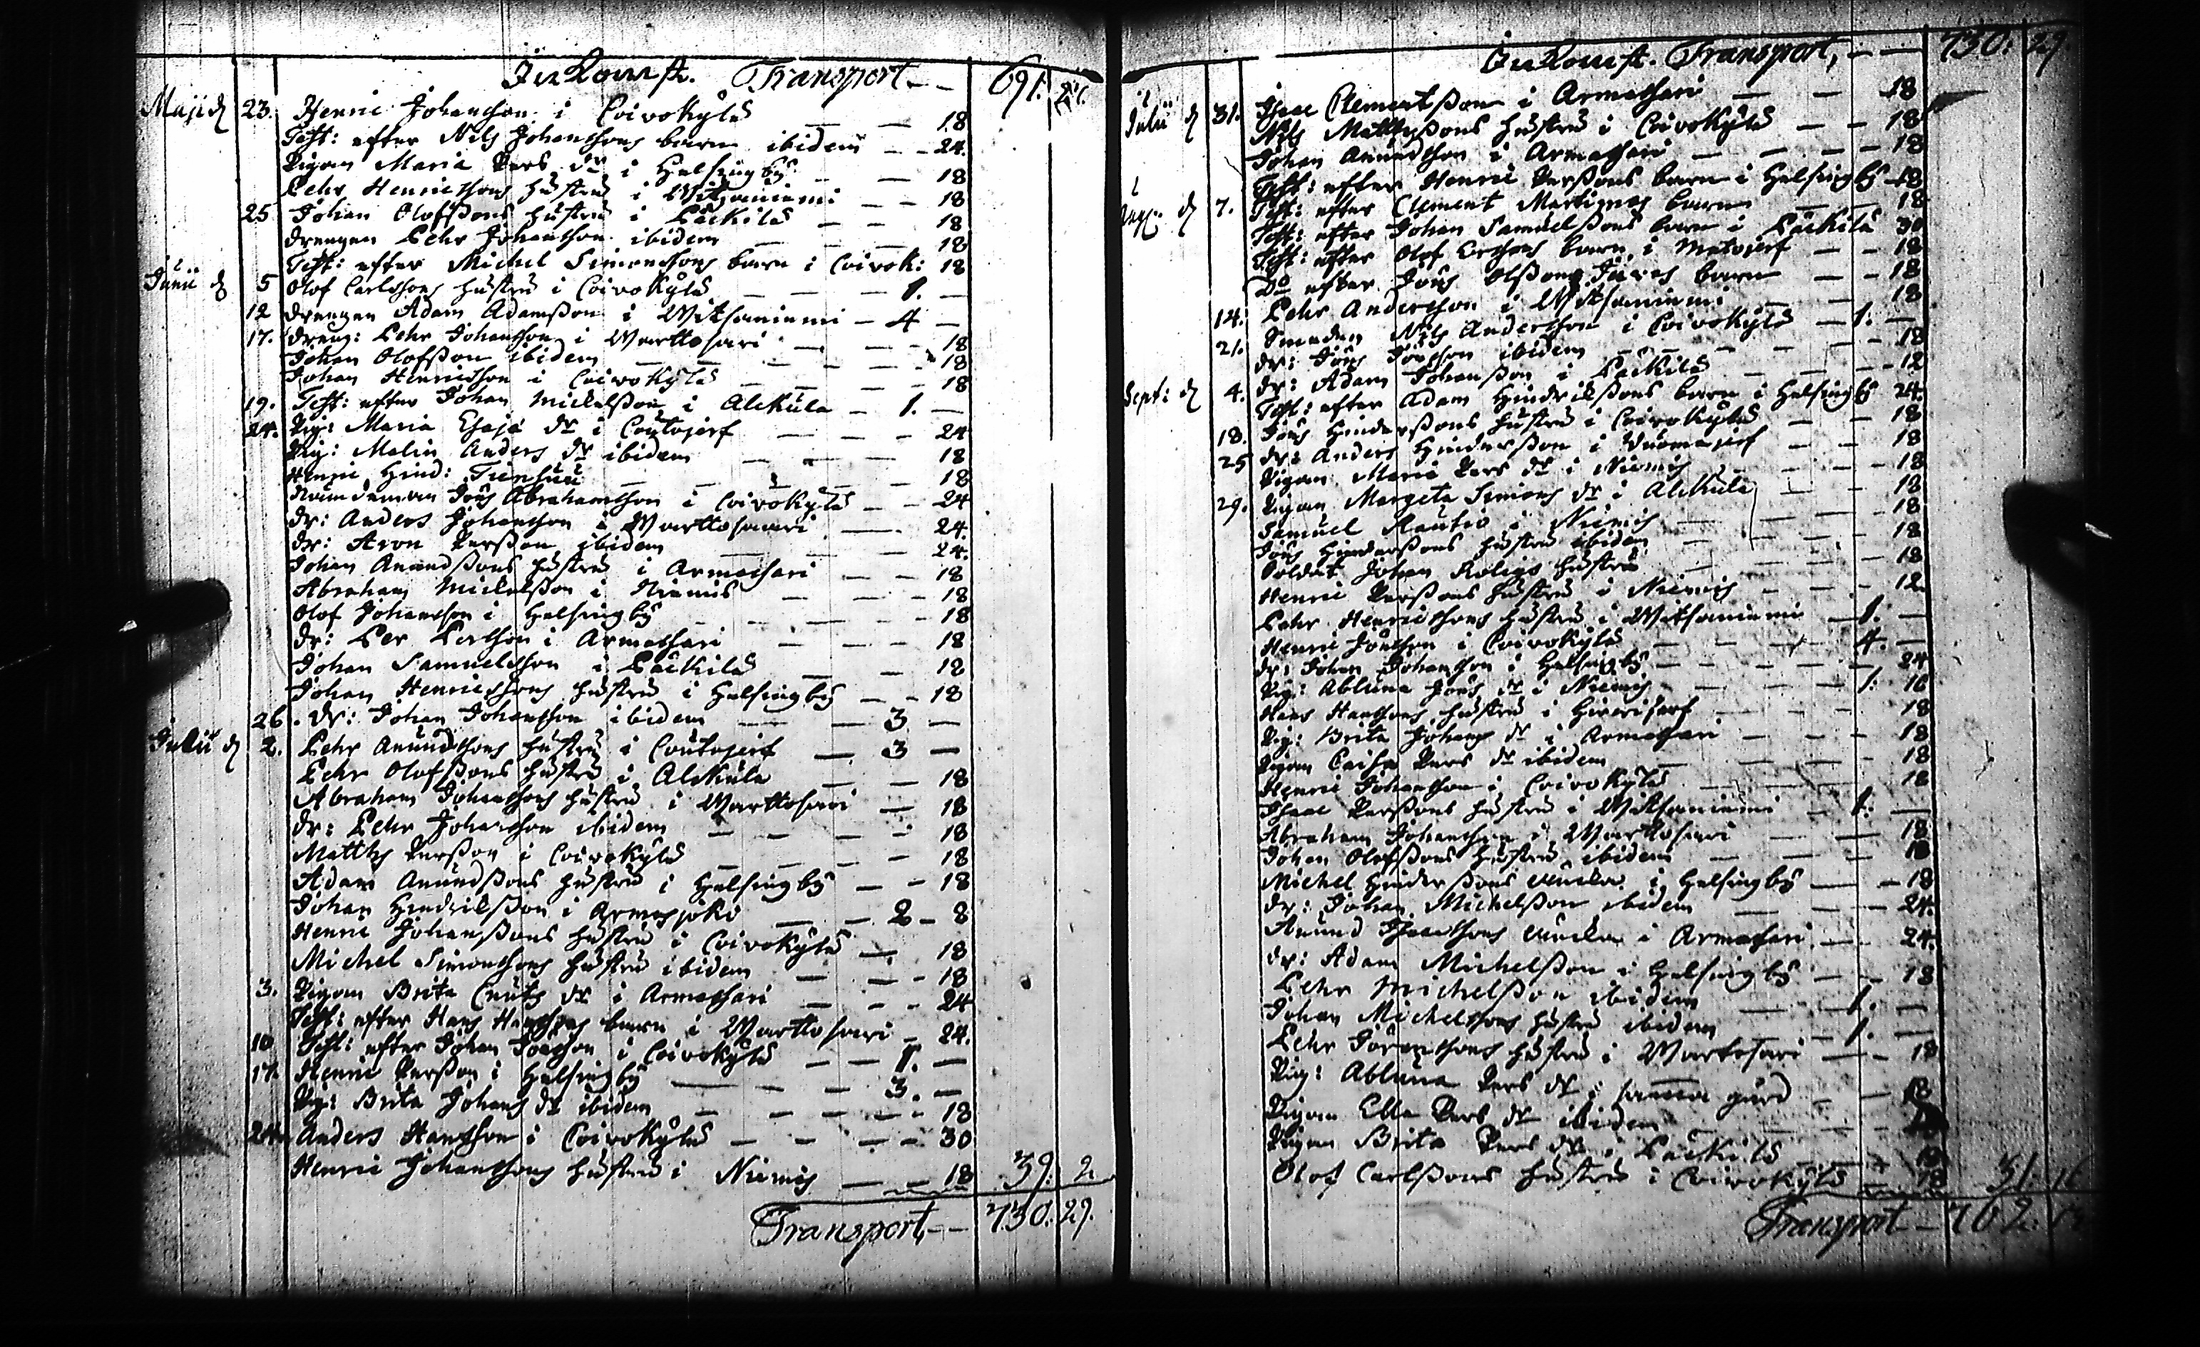 Inkomst. Transport — 691.
Maji d 23. Henric Johansson i Coivokylä — 18
Test: efter Nils Johanssons barn ibidem — 24.
Pigan Maria Pers dr i Helsingby — 18
Pehr Henricssons hustru i Witsaniemi — 18
25 Johan Olofssons hustru i Päckilä — 18
Drengen Pehr Johansson ibidem — 18
Test: efter Michel Simonssons barn i Coivok: 18
Junii d 5 Olof Carlssons hustru i Coivokylä — 1. —
12 Drengen Adam Adamsson i Witsaniemi — 4 —
17. Dreng: Pehr Johansson i Marttosari — 18
Johan Olofsson ibidem — 18
Johan Henricsson i Coivokylä — 18
19. Test: efter Johan Mickelsson i Alckula — 1. —
24. Pig: Maria Esaiæ dr i Coutojerf — 24
Pig: Malin Anders dr ibidem — 18
Henric Hind: — 18
Jöns Abrahamsson i Coivokylä — 24
dr: Anders Johansson i Marttosaari — 24.
dr: Aron Persson ibidem — 24.
Johan Anundssons hustru i Armassari — 18
Abraham Mickelsson i Niemis — 18
Olof Johansson i Helsingby — 18
dr: Per Persson i Armassari — 18
Johan Samuelsson i Päckilä — 18
Johan Henricssons hustru i Helsingby — 18
26. dr: Johan Johansson ibidem — 3 —
Julii d 2. Pehr Anundssons hustru i Coutojerf — 3 —
Pehr Olofssons hustru i Alckula — 18
Abraham Johanssons hustru i Marttosari — 18
dr: Pehr Johansson ibidem — 18
Matths Persson i Coivokylä — 18
Adam Anundssons hustru i Helsingby — 18
Johan Hindriksson i Armasjoki — 2 - 8
Henric Johanssons hustru i Coivokylä — 18
Michel Simonssons hustru ibidem — 18
3. Pigan Brita Cnuts dr i Armassari — 24
Test: efter Hans Hanssons barn i Marttosari — 24.
10 Test: efter Johan Joensson i Coivokylä — 1. —
17. Henric Persson i Helsingby — 3. —
Pig: Brita Johans dr ibidem — 18
24. Anders Hansson i Coivokylä — 30
Henric Johanssons hustru i Niemis — 18 39. 2
Transport — 730. 29.
Inkomst. Transport, — 730. 29.
Julii d 31. Isac Clementsson i Armassari — 18
Nils Mattssons hustru i Coivokylä — 18
Johan Anundsson i Armassari — 18
Test: efter Henric Perssons barn i Helsingby — 18
Aug: d 7. Test: efter Clement Martinas barn — 18
Test: efter Johan Samuelssons barn i Päckilä 30
Test: efter Olof Erssons barn i Matojerf — 18
Do efter Jöns Olssons barn — 18
14. Pehr Andersson i Witsaniemi — 18
Smeden Nils Andersson i Coivokylä — 1. —
21. dr: Jöns Jönsson ibidem — 18
dr: Adam Johansson i Päckilä — 12
Sept: d 4. Test: efter Adam Hindrikssons barn i Helsingby 24.
Jöns Hinderssons hustru i Coivokylä — 18
18. dr: Anders Hindersson i — 18
25 Pigan Maria Pers dr i Niemis — 18
29. Pigan Margeta Simons dr i Alckula — 18
Samuel Rautio i Niemis — 18
Jöns Hinderssons hustru ibidem — 18
Soldat Johan hustru — 18
Henric Perssons hustru i Niemis — 12
Pehr Henricssons hustru i Witsaniemi — 1. —
Henric Jönsson i Coivokylä — 4. —
dr: Johan Johansson i Helsingby — 24
Pig: Abluna Jöns dr i Niemis — 1: 16
Hans Hanssons hustru i — 18
Pig: Brita Johans dr i Armassari — 18
Pigan Caisa Pers dr ibidem — 18
Henric Johansson i Coivokylä — 18
Isaac Perssons hustru i Witsaniemi — 1: —
Abraham Johansson i Marttosari — 18
Johan Olofssons hustru ibidem — 18
Michel Hinderssons encka i Helsingby — 18
dr: Johan Michelsson ibidem — 24.
Anund Isacssons encka i Armassari — 24.
dr: Adam Michelsson i Helsingby — 18
Pehr Michelsson ibidem — 1. —
Johan Michelssons hustru ibidem — 1. —
Pehr hustru i Martosari — 18
Pig: Abluna Pers dr i samma gård — 18
Pigan Ella Pers dr ibidem —
Pigan Brita Pers dr i Päckilä — 18
Olof Carlssons hustru i Coivokylä — 18 31. 16
Transport — 762.